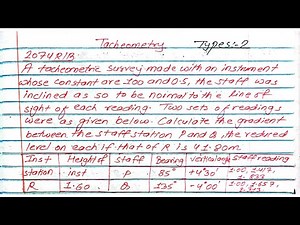 Tacheometry Types:-2
2074 R/B
A tacheometric survey made with an instrument
whose constant are 100 and 0.5, the staff was
inclined as so to be normal to the line of
sight of each reading. Two sets of readings
were as given below. Calculate the gradient
between the staff station P and Q, the reduced
level on each if that of R is 41.80m.
Inst Height of Staff Bearing vertical angle Staff reading
station inst P 85° +4°30' 1.00,
R 1.60 Q 135° -4°00' 1.00,